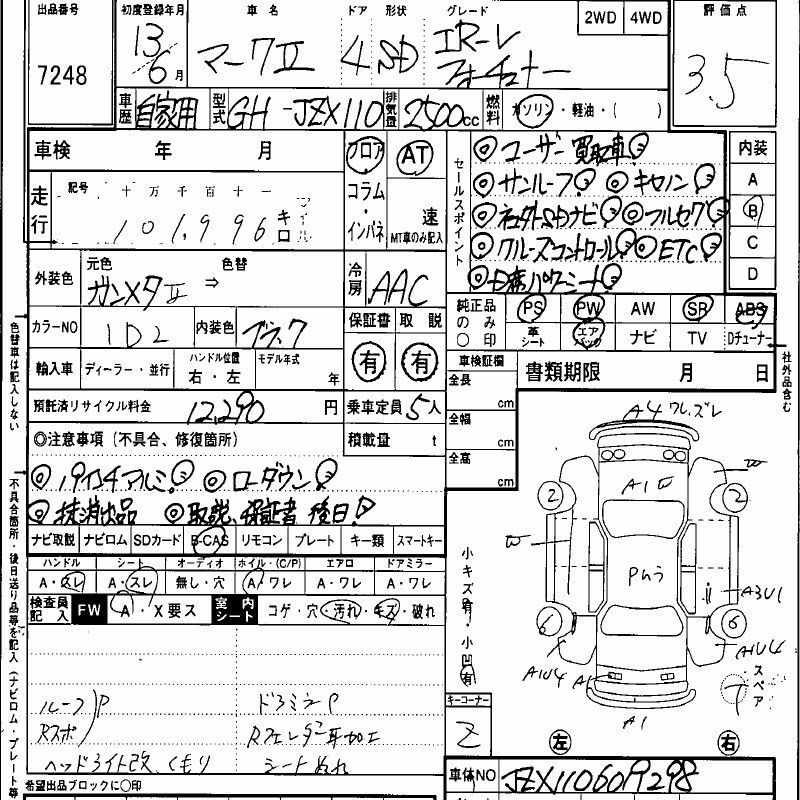 出品番号 7248
初度登録年月 13 6月
車名 マークⅡ
ドア 4
形状 SD
グレード IR-V フォーチュナー
2WD 4WD
評価点 3.5
車歴 自家用
型式 GH-JZX110
排気量 2500cc
燃料 ガソリン・軽油・( )
車検 年 月
フロア コラム・インパネ
AT 速 MT車のみ記入
走行 記号 十万千百十一
101,996 キロ
セールスポイント
◎ユーザー買取車!
◎サンルーフ! ◎キセノン!
◎社外SDナビ! ◎フルセグ!
◎クルーズコントロール! ◎ETC!
パワーシート!
内装 A B C D
外装色 元色 ガンメタⅡ ⇒ 色替
冷房 AAC
カラーNO 1D2
内装色 ブラック
保証書 有
取説 有
純正品のみ○印
PS PW AW SR ABS
革シート エアバック ナビ TV Dチューナー
輸入車 ディーラー・並行
ハンドル位置 右・左
モデル年式 年
車検証欄 全長 cm 全幅 cm 全高 cm
書類期限 月 日
預託済リサイクル料金 12,290円
乗車定員 5人
積載量 t
◎注意事項(不具合、修復箇所)
◎19インチアルミ! ◎ローダウン!
◎抹消出品 ◎取説、保証書 後日!
ナビ取説 ナビロム SDカード B-CAS リモコン プレート キー類 スマートキー
ハンドル A・スレ
シート A・スレ
オーディオ 無し・穴
ホイル・(C/P) A・ワレ
エアロ A・ワレ
ドアミラー A・ワレ
検査員記入 FW A・X要ス
室内シート コゲ・穴・汚れ・キズ・破れ
ルーフ P
Rスポ
ドアミラー P
Rフェンダー耳加工
ヘッドライト改、くもり
シートぬれ
希望出品ブロックに○印
色替車は記入しない
不具合箇所・後日送り品等を記入(ナビロム・プレート等
社外品含む
小キズ有・小凹有
キーコーナー Z
A4 ワレ、ズレ
W
A1
2
2
W
Pルう
A3U1
6
6
X
A1U4
A1U4
A1
A1
スペア
左
右
車体NO JZX1106019298